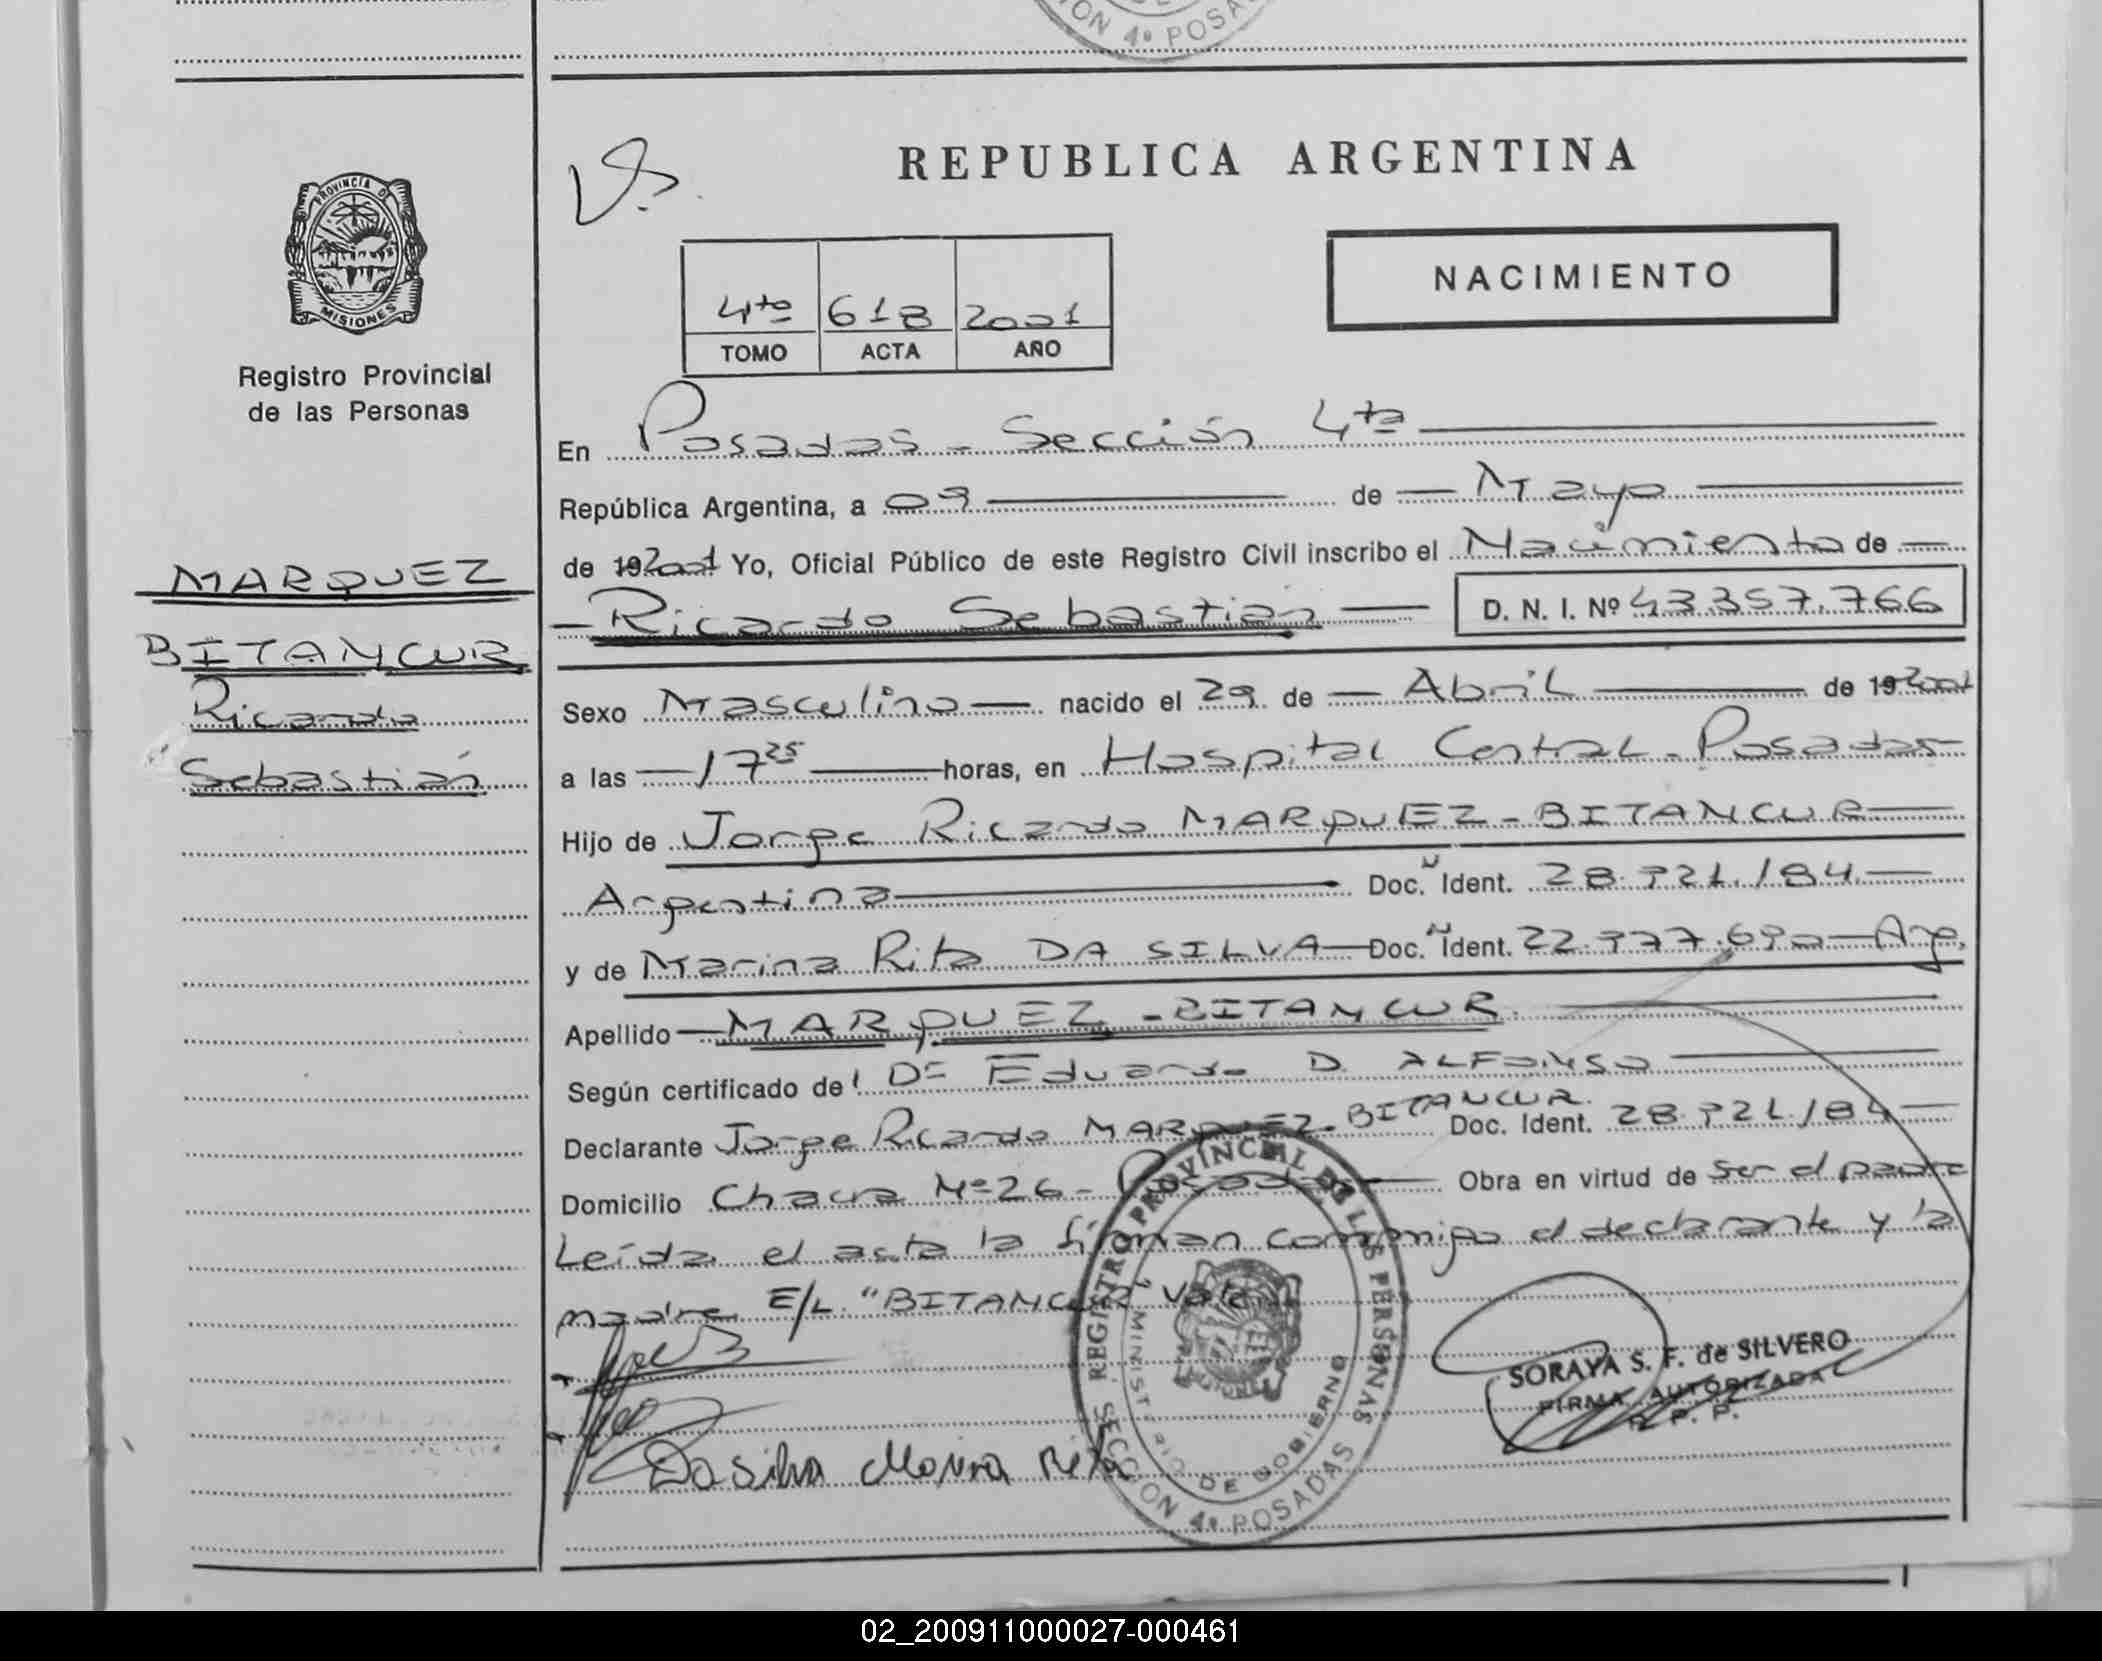 ION 4ª POSADAS
PROVINCIA DE
MISIONES
Registro Provincial
de las Personas
MARQUEZ
BITANCUR
Ricardo
Sebastián
REPUBLICA ARGENTINA
NACIMIENTO
4to 618 2001
TOMO ACTA AÑO
En Posadas - Sección 4ta
República Argentina, a 09 de Mayo
de 192001 Yo, Oficial Público de este Registro Civil inscribo el Nacimiento de
Ricardo Sebastián D. N. I. Nº 43.357.766
Sexo Masculino nacido el 29 de Abril de 192001
a las 17 25 horas, en Hospital Central - Posadas
Hijo de Jorge Ricardo MARQUEZ - BITANCUR
Argentina Doc. Ident. 28.721.184
y de Marina Rita DA SILVA Doc. Ident. 22.777.690 Arg.
Apellido MARQUEZ - BITANCUR
Según certificado del Dr Eduardo D. ALFONSO
Declarante Jorge Ricardo MARQUEZ - BITANCUR Doc. Ident. 28.721.184
Domicilio Chacra Nº 26 - Posadas Obra en virtud de ser el padre
Leída el acta la firman conmigo el declarante y la
madre E/L. "BITANCUR" Vale
Da Silva Marina Rita
REGISTRO PROVINCIAL DE LAS PERSONAS
MINISTERIO DE GOBIERNO
SECCION 4ª POSADAS
SORAYA S. F. de SILVERO
FIRMA AUTORIZADA
R. P. P.
02_200911000027-000461